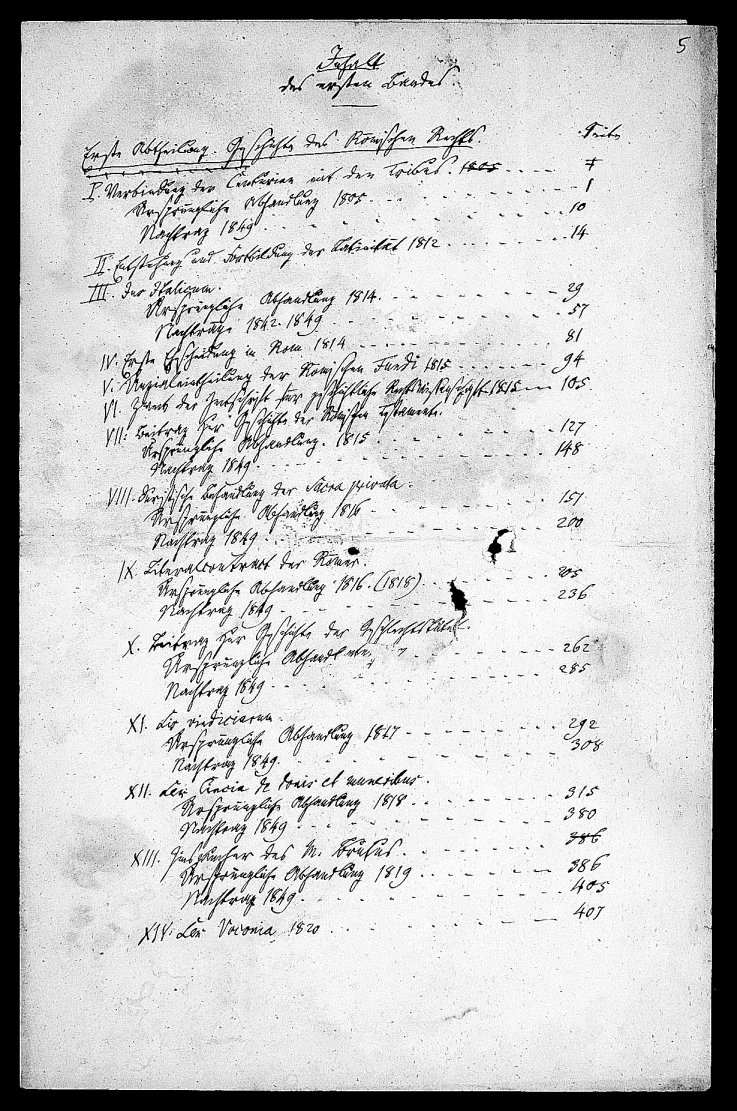 5
Inhalt
des ersten Bandes.
Erste Abtheilung. Geschichte des Römischen Rechts. Seite
I. Verbindung der Centurien mit den Tribus. 1805 1
Ursprüngliche Abhandlung 1805 1
Nachtrag 1849 10
II. Entstehung und Fortbildung der Latinität 1812 14
III. Jus Italicum.
Ursprüngliche Abhandlung 1814 29
Nachträge 1842. 1849 57
IV. Erste Ehescheidung in Rom 1814 81
V. Unzialeintheilung der Römischen Fundi 1815 94
VI. Zweck der Zeitschrift für geschichtliche Rechtswissenschaft 1815 105
VII. Beitrag zur Geschichte des Römischen Testaments.
Ursprüngliche Abhandlung. 1815 127
Nachtrag 1849 148
VIII. Juristische Behandlung der Sacra privata.
Ursprüngliche Abhandlung 1816 151
Nachtrag 1849 200
IX. Literalcontract der Römer.
Ursprüngliche Abhandlung 1816. (1818) 205
Nachtrag 1849 236
X. Beitrag zur Geschichte der Geschlechtstutel.
Ursprüngliche Abhandl 262
Nachtrag 1849 285
XI. Lis vindiciarum.
Ursprüngliche Abhandlung 1817 292
Nachtrag 1849 308
XII. Lex Cincia de donis et muneribus.
Ursprüngliche Abhandlung 1818 315
Nachtrag 1849 380
XIII. des M. Brutus. 386
Ursprüngliche Abhandlung 1819 386
Nachtrag 1849 405
XIV. Lex Voconia, 1820 407